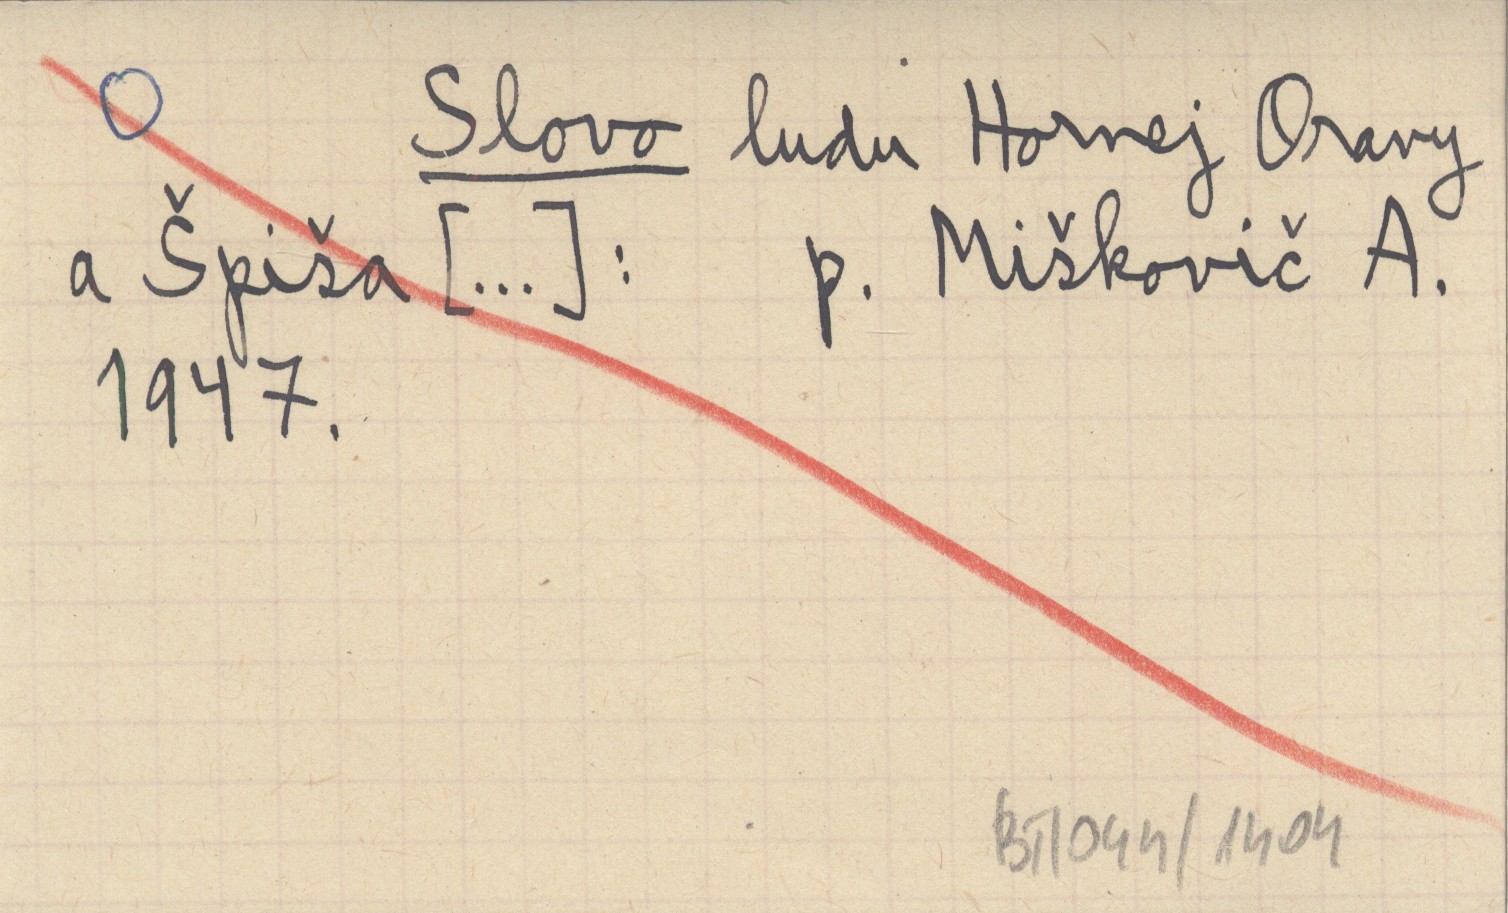 Slovo ludu Hornej Oravy
a Špiša [...]: p. Miškovič A.
1947.
BT/044/1404